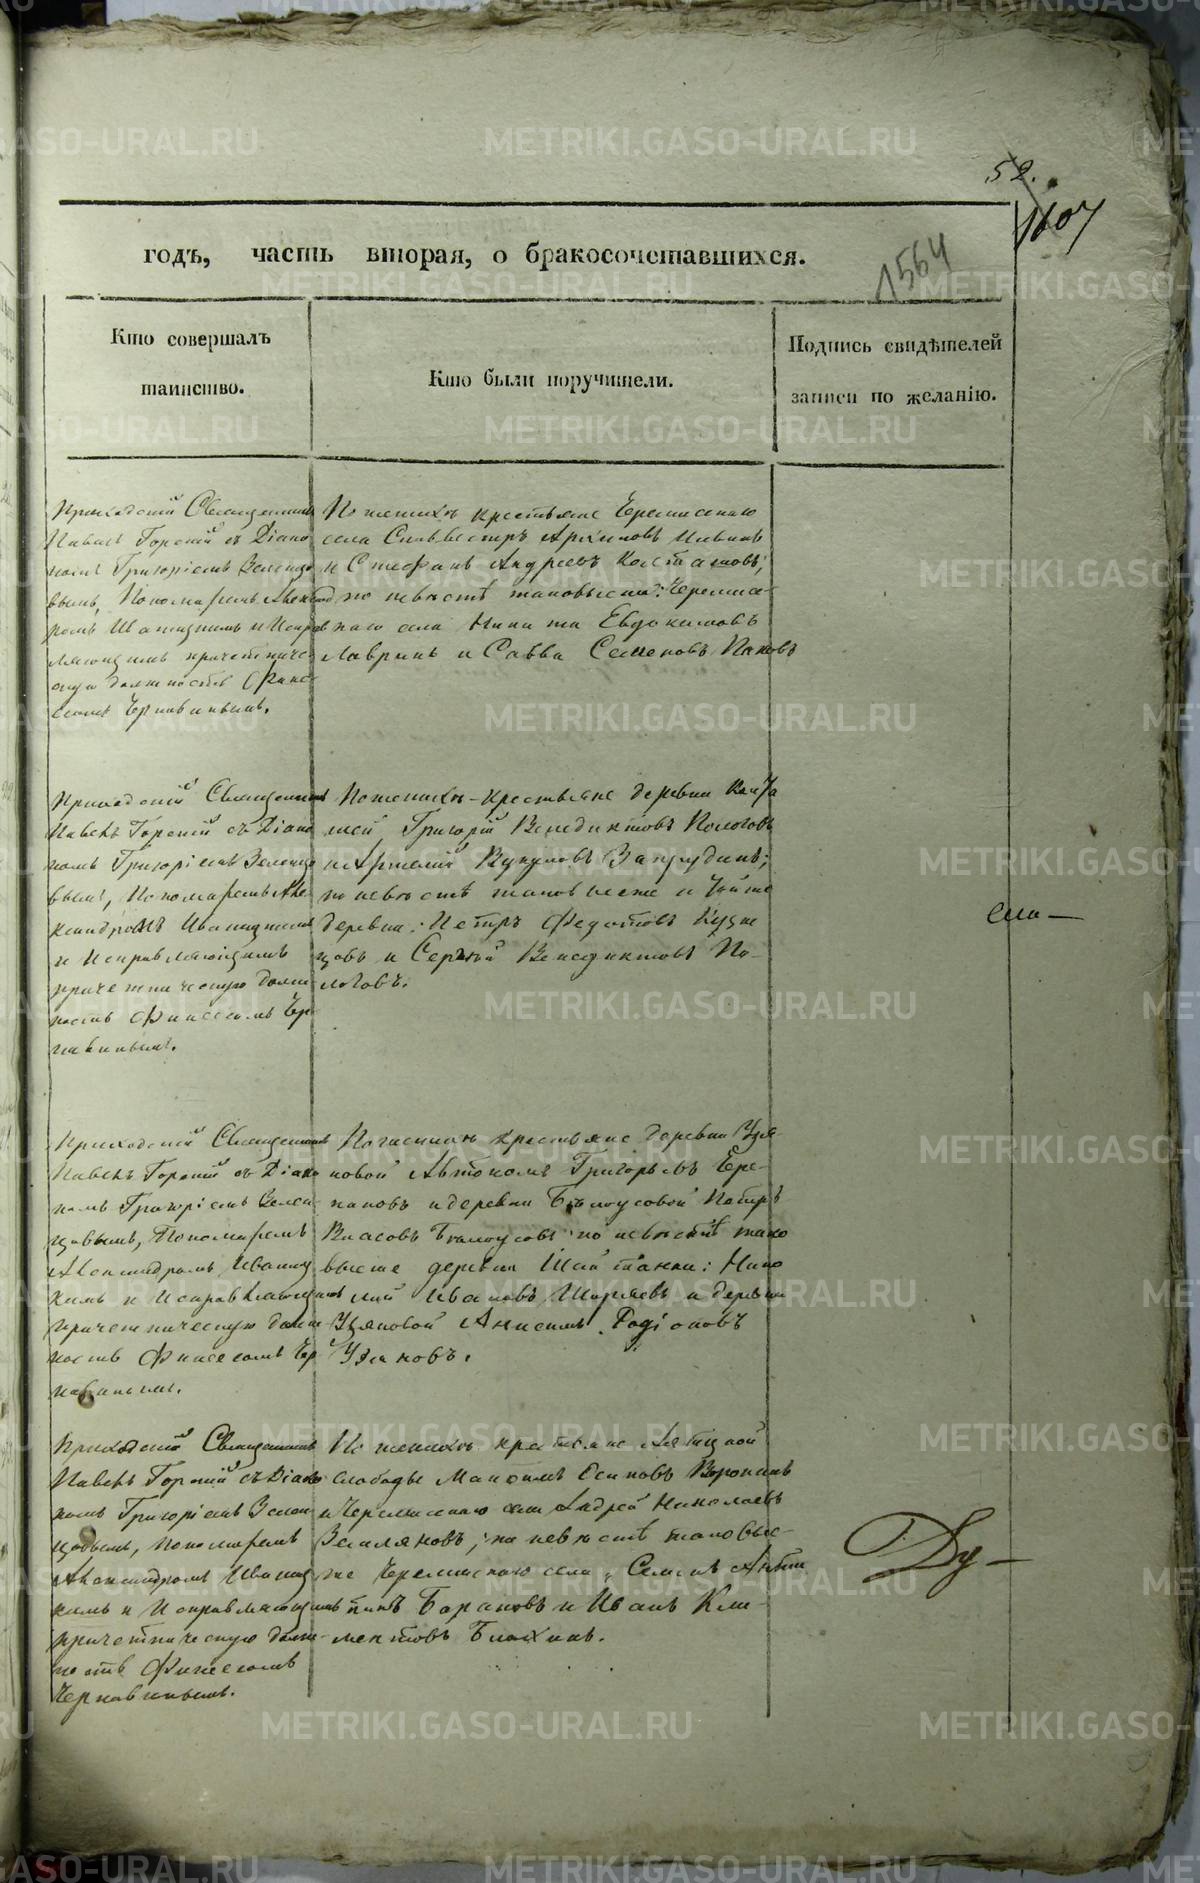 52.
1607
1564
годъ, часть вторая, о бракосочетавшихся.
Кто совершалъ
таинство.
Кто были поручители.
Подпись свидѣтелей
записи по желанію.
Приходскій Священникъ
Павелъ Горскій съ Діако
номъ Григоріемъ Зеленцо
вымъ, Пономаремъ Александ
ромъ Иваницкимъ и Исправ
ляющимъ причетниче
скую должность Финее
сомъ Чернавинымъ.
По женихѣ крестьяне Черемисскаго
села Сильвестръ Архиповъ
и Стефанъ Андреевъ
по невѣстѣ таковыеже: Черемис
скаго села Никита Евдокимовъ
и Савва Семеновъ Пановъ
Приходскій Священникъ
Павелъ Горскій съ Діако
номъ Григоріемъ Зеленцо
вымъ, Пономаремъ Але
ксандромъ Иваницкимъ
и Исправляющимъ
причетническую долж
ность Финеесомъ Чер
навинымъ.
По женихѣ крестьяне деревни
Григорій Венедиктовъ Пологовъ
по невѣстѣ таковыеже и тойже
деревни: Петръ Федотовъ Кузне
цовъ и Сергѣй Венедиктовъ По-
логовъ.
Приходскій Священникъ
Павелъ Горскій съ Діако
номъ Григоріемъ Зелен
цовымъ, Пономаремъ
Александромъ Иваниц
кимъ и Исправляющимъ
причетническую долж
ность Финеесомъ Чер
навинымъ.
По женихѣ крестьяне деревни Узя
новой Автономъ Григорьевъ Чере-
пановъ и деревни Бѣлоусовой Петръ
Власовъ Бѣлоусовъ по невѣстѣ тако
выеже деревни Шайтанки: Нико
лай Ивановъ Ширяевъ и деревни
Узяновой Анисимъ Родіоновъ
Узяновъ.
Приходскій Священникъ
Павелъ Горскій съ Діако
номъ Григоріемъ Зелен
цовымъ, Пономаремъ
Александромъ Иваниц
кимъ и Исправляющимъ
причетническую долж
ность Финеесомъ
Чернавинымъ.
По женихѣ крестьяне Аятской
слободы Максимъ Осиповъ Воронинъ
и Черемисскаго села Андрей Николаевъ
Земляновъ; по невѣстѣ таковые-
же Черемисскаго села: Семенъ
Барановъ и Иванъ Кли-
ментовъ Блохинъ.
METRIKI.GASO-URAL.RU